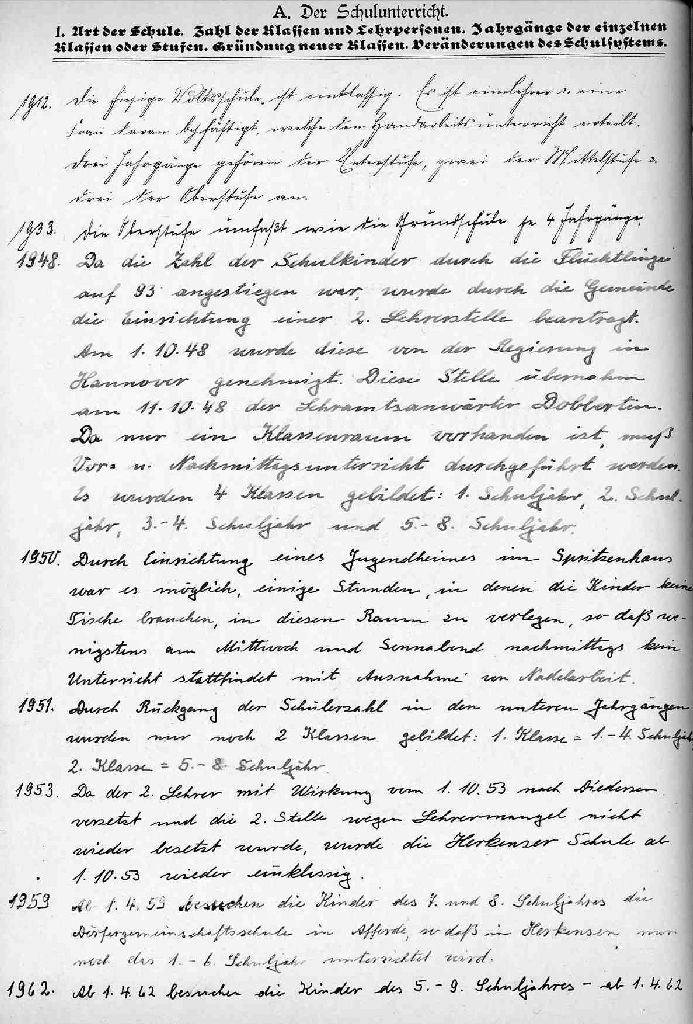 A. Der Schulunterricht.
1. Art der Schule. Zahl der Klassen und Lehrpersonen. Jahrgänge der einzelnen
Klassen oder Stufen. Gründung neuer Klassen. Veränderungen des Schulsystems.
1912. Die hiesige Volksschule ist einklassig. Es ist ein Lehrer u. eine
Frau daran beschäftigt, welche den Handarbeitsunterricht erteilt.
Drei Jahrgänge gehören der Unterstufe, zwei der Mittelstufe u.
drei der Oberstufe an.
1933. Die Oberstufe umfaßt wie die Grundschule je 4 Jahrgänge.
1948. Da die Zahl der Schulkinder durch die Flüchtlinge
auf 93 angestiegen war, wurde durch die Gemeinde
die Einrichtung einer 2. Lehrerstelle beantragt.
Am 1.10.48 wurde diese von der Regierung in
Hannover genehmigt. Diese Stelle übernahm
am 11.10.48 der Lehramtsanwärter Dobbertin.
Da nur ein Klassenraum vorhanden ist, muß
Vor- u. Nachmittagsunterricht durchgeführt werden.
Es wurden 4 Klassen gebildet: 1. Schuljahr, 2. Schul-
jahr, 3.-4. Schuljahr und 5.-8. Schuljahr.
1950. Durch Einrichtung eines Jugendheimes im Spritzenhaus
war es möglich, einige Stunden, in denen die Kinder keine
Tische brauchen, in diesen Raum zu verlegen, so daß we-
nigstens am Mittwoch und Sonnabend nachmittags kein
Unterricht stattfindet mit Ausnahme von Nadelarbeit.
1951. Durch Rückgang der Schülerzahl in den unteren Jahrgängen
wurden nur noch 2 Klassen gebildet: 1. Klasse = 1.-4. Schuljahr
2. Klasse = 5.-8. Schuljahr.
1953. Da der 2. Lehrer mit Wirkung vom 1.10.53 nach Diedersen
versetzt und die 2. Stelle wegen Lehrermangel nicht
wieder besetzt wurde, wurde die Herkenser Schule ab
1.10.53 wieder einklassig.
1959 Ab 1.4.59 besuchen die Kinder des 7. und 8. Schuljahres die
Dörfergemeinschaftsschule in Afferde, so daß in Herkensen nur
noch das 1.-6. Schuljahr unterrichtet wird.
1962. Ab 1.4.62 besuchen die Kinder des 5.-9. Schuljahres - ab 1.4.62